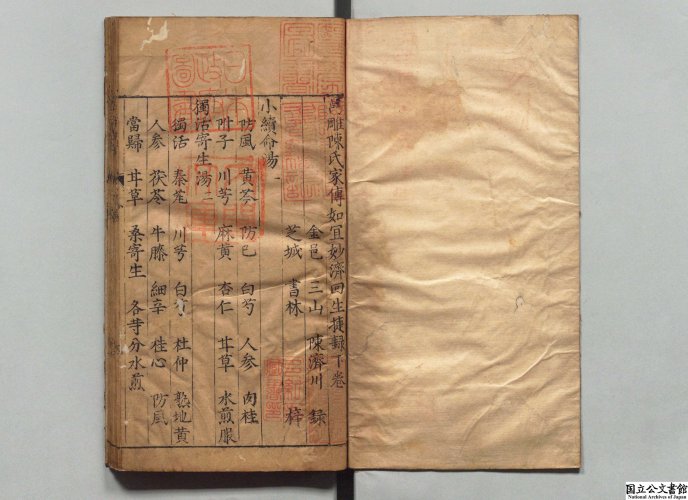 雕陳氏家傳如宜妙濟回生捷録下卷
金邑 三山 陳濟川 録
芝城 書林 梓
小續命湯一
防風 黄芩 防已 白芍 人參 肉桂
附子 川芎 麻黄 杏仁 甘草 水煎服
獨活寄生湯二
獨活 秦艽 川芎 白芍 杜仲 熟地黄
人參 茯苓 牛膝 細辛 桂心 防風
當歸 甘草 桑寄生 各等分水煎
国立公文書館
National Archives of Japan